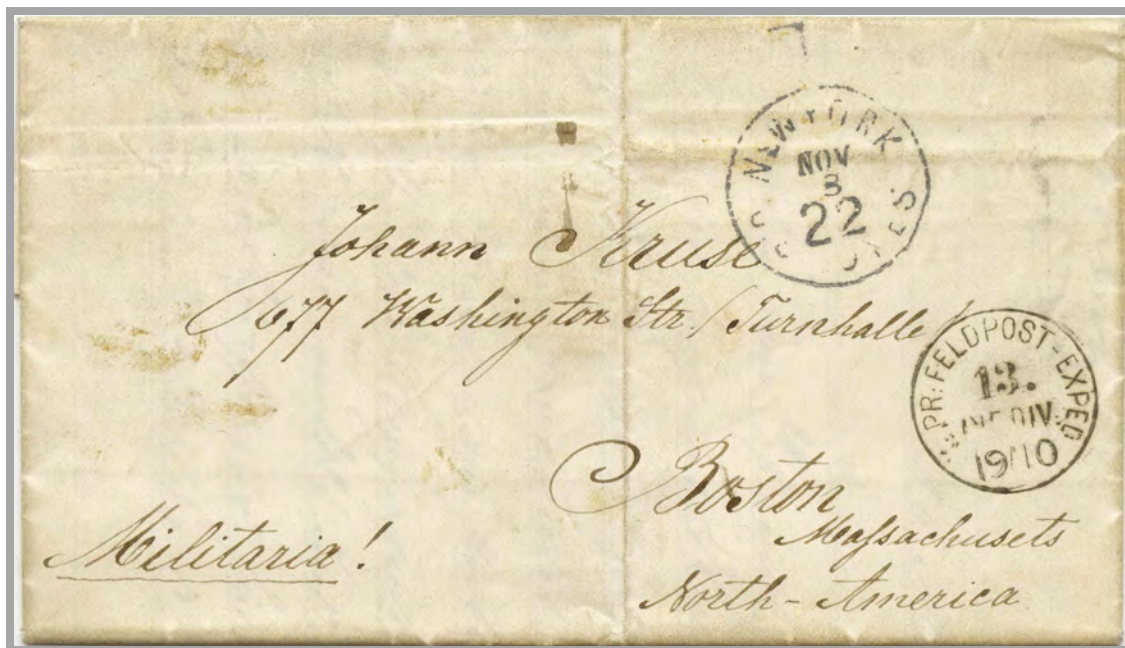 NEW YORK
NOV
3
22
Johann Kruse
677 Washington Str. (Turnhalle)
PR: FELDPOST-EXPED
13.
INF. DIV.
19/10
Boston
Massachusets
North-America
Militaria!